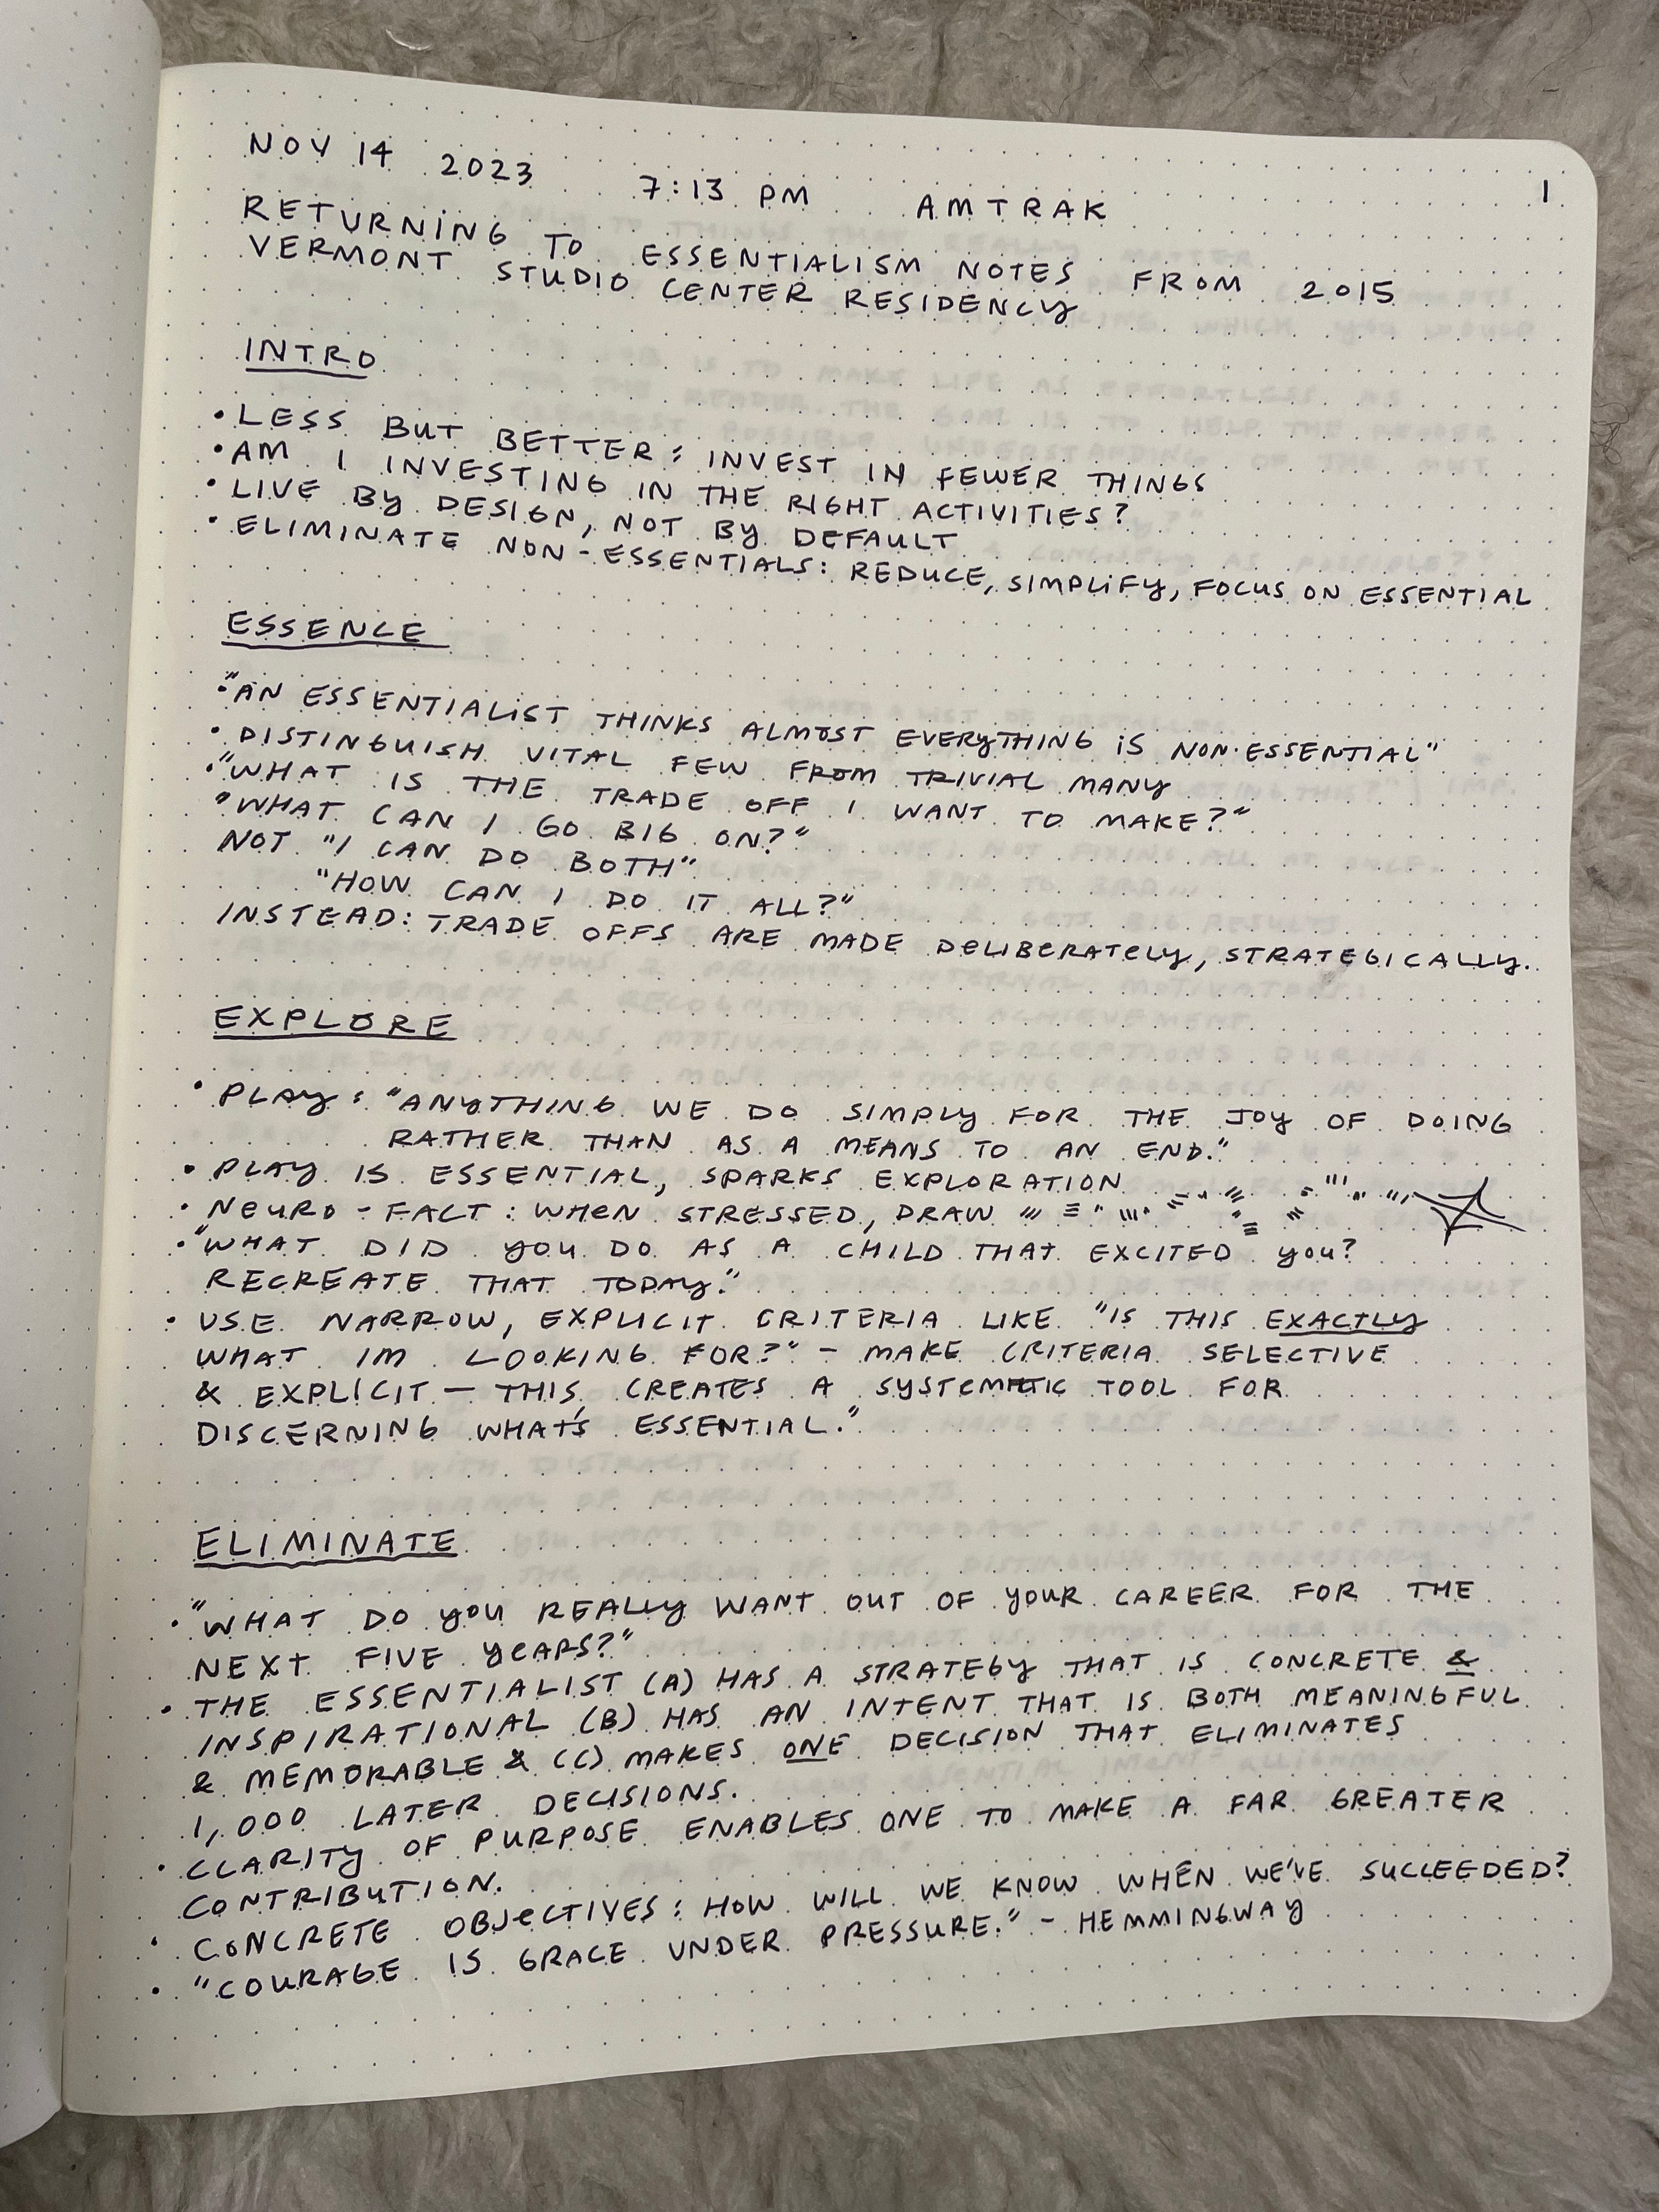 NOV 14 2023 7:13 PM AMTRAK 1
RETURNING TO ESSENTIALISM NOTES FROM 2015
VERMONT STUDIO CENTER RESIDENCY
INTRO
• LESS BUT BETTER: INVEST IN FEWER THINGS
• AM I INVESTING IN THE RIGHT ACTIVITIES?
• LIVE BY DESIGN, NOT BY DEFAULT
• ELIMINATE NON-ESSENTIALS: REDUCE, SIMPLIFY, FOCUS ON ESSENTIAL
ESSENCE
• "AN ESSENTIALIST THINKS ALMOST EVERYTHING IS NON-ESSENTIAL"
• DISTINGUISH VITAL FEW FROM TRIVIAL MANY
• "WHAT IS THE TRADE OFF I WANT TO MAKE?"
• "WHAT CAN I GO BIG ON?"
NOT "I CAN DO BOTH"
"HOW CAN I DO IT ALL?"
INSTEAD: TRADE OFFS ARE MADE DELIBERATELY, STRATEGICALLY.
EXPLORE
• PLAY: "ANYTHING WE DO SIMPLY FOR THE JOY OF DOING
RATHER THAN AS A MEANS TO AN END."
• PLAY IS ESSENTIAL, SPARKS EXPLORATION
• NEURO-FACT: WHEN STRESSED, DRAW
• "WHAT DID YOU DO AS A CHILD THAT EXCITED YOU?
RECREATE THAT TODAY."
• USE NARROW, EXPLICIT CRITERIA LIKE "IS THIS EXACTLY
WHAT IM LOOKING FOR?" - MAKE CRITERIA SELECTIVE
& EXPLICIT — THIS CREATES A SYSTEMATIC TOOL FOR
DISCERNING WHAT'S ESSENTIAL."
ELIMINATE
• "WHAT DO YOU REALLY WANT OUT OF YOUR CAREER FOR THE
NEXT FIVE YEARS?"
• THE ESSENTIALIST (A) HAS A STRATEGY THAT IS CONCRETE &
INSPIRATIONAL (B) HAS AN INTENT THAT IS BOTH MEANINGFUL
& MEMORABLE & (C) MAKES ONE DECISION THAT ELIMINATES
1,000 LATER DECISIONS.
• CLARITY OF PURPOSE ENABLES ONE TO MAKE A FAR GREATER
CONTRIBUTION.
• CONCRETE OBJECTIVES: HOW WILL WE KNOW WHEN WE'VE SUCCEEDED?
• "COURAGE IS GRACE UNDER PRESSURE." - HEMMINGWAY